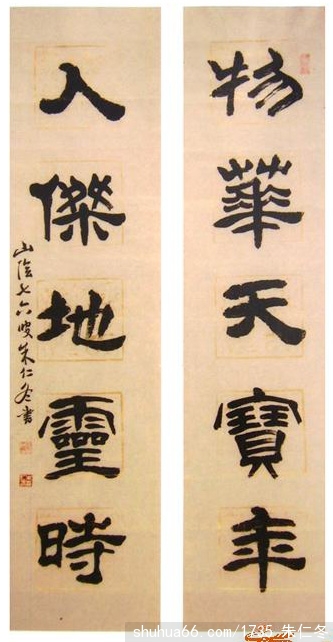 物華天寶年
人傑地靈時
山陰七六叟朱仁冬書
shuhua66.com/1735 朱仁冬